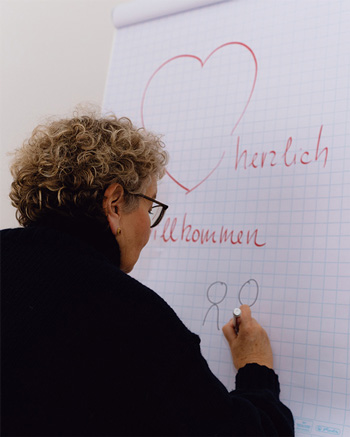 herzlich
illkommen